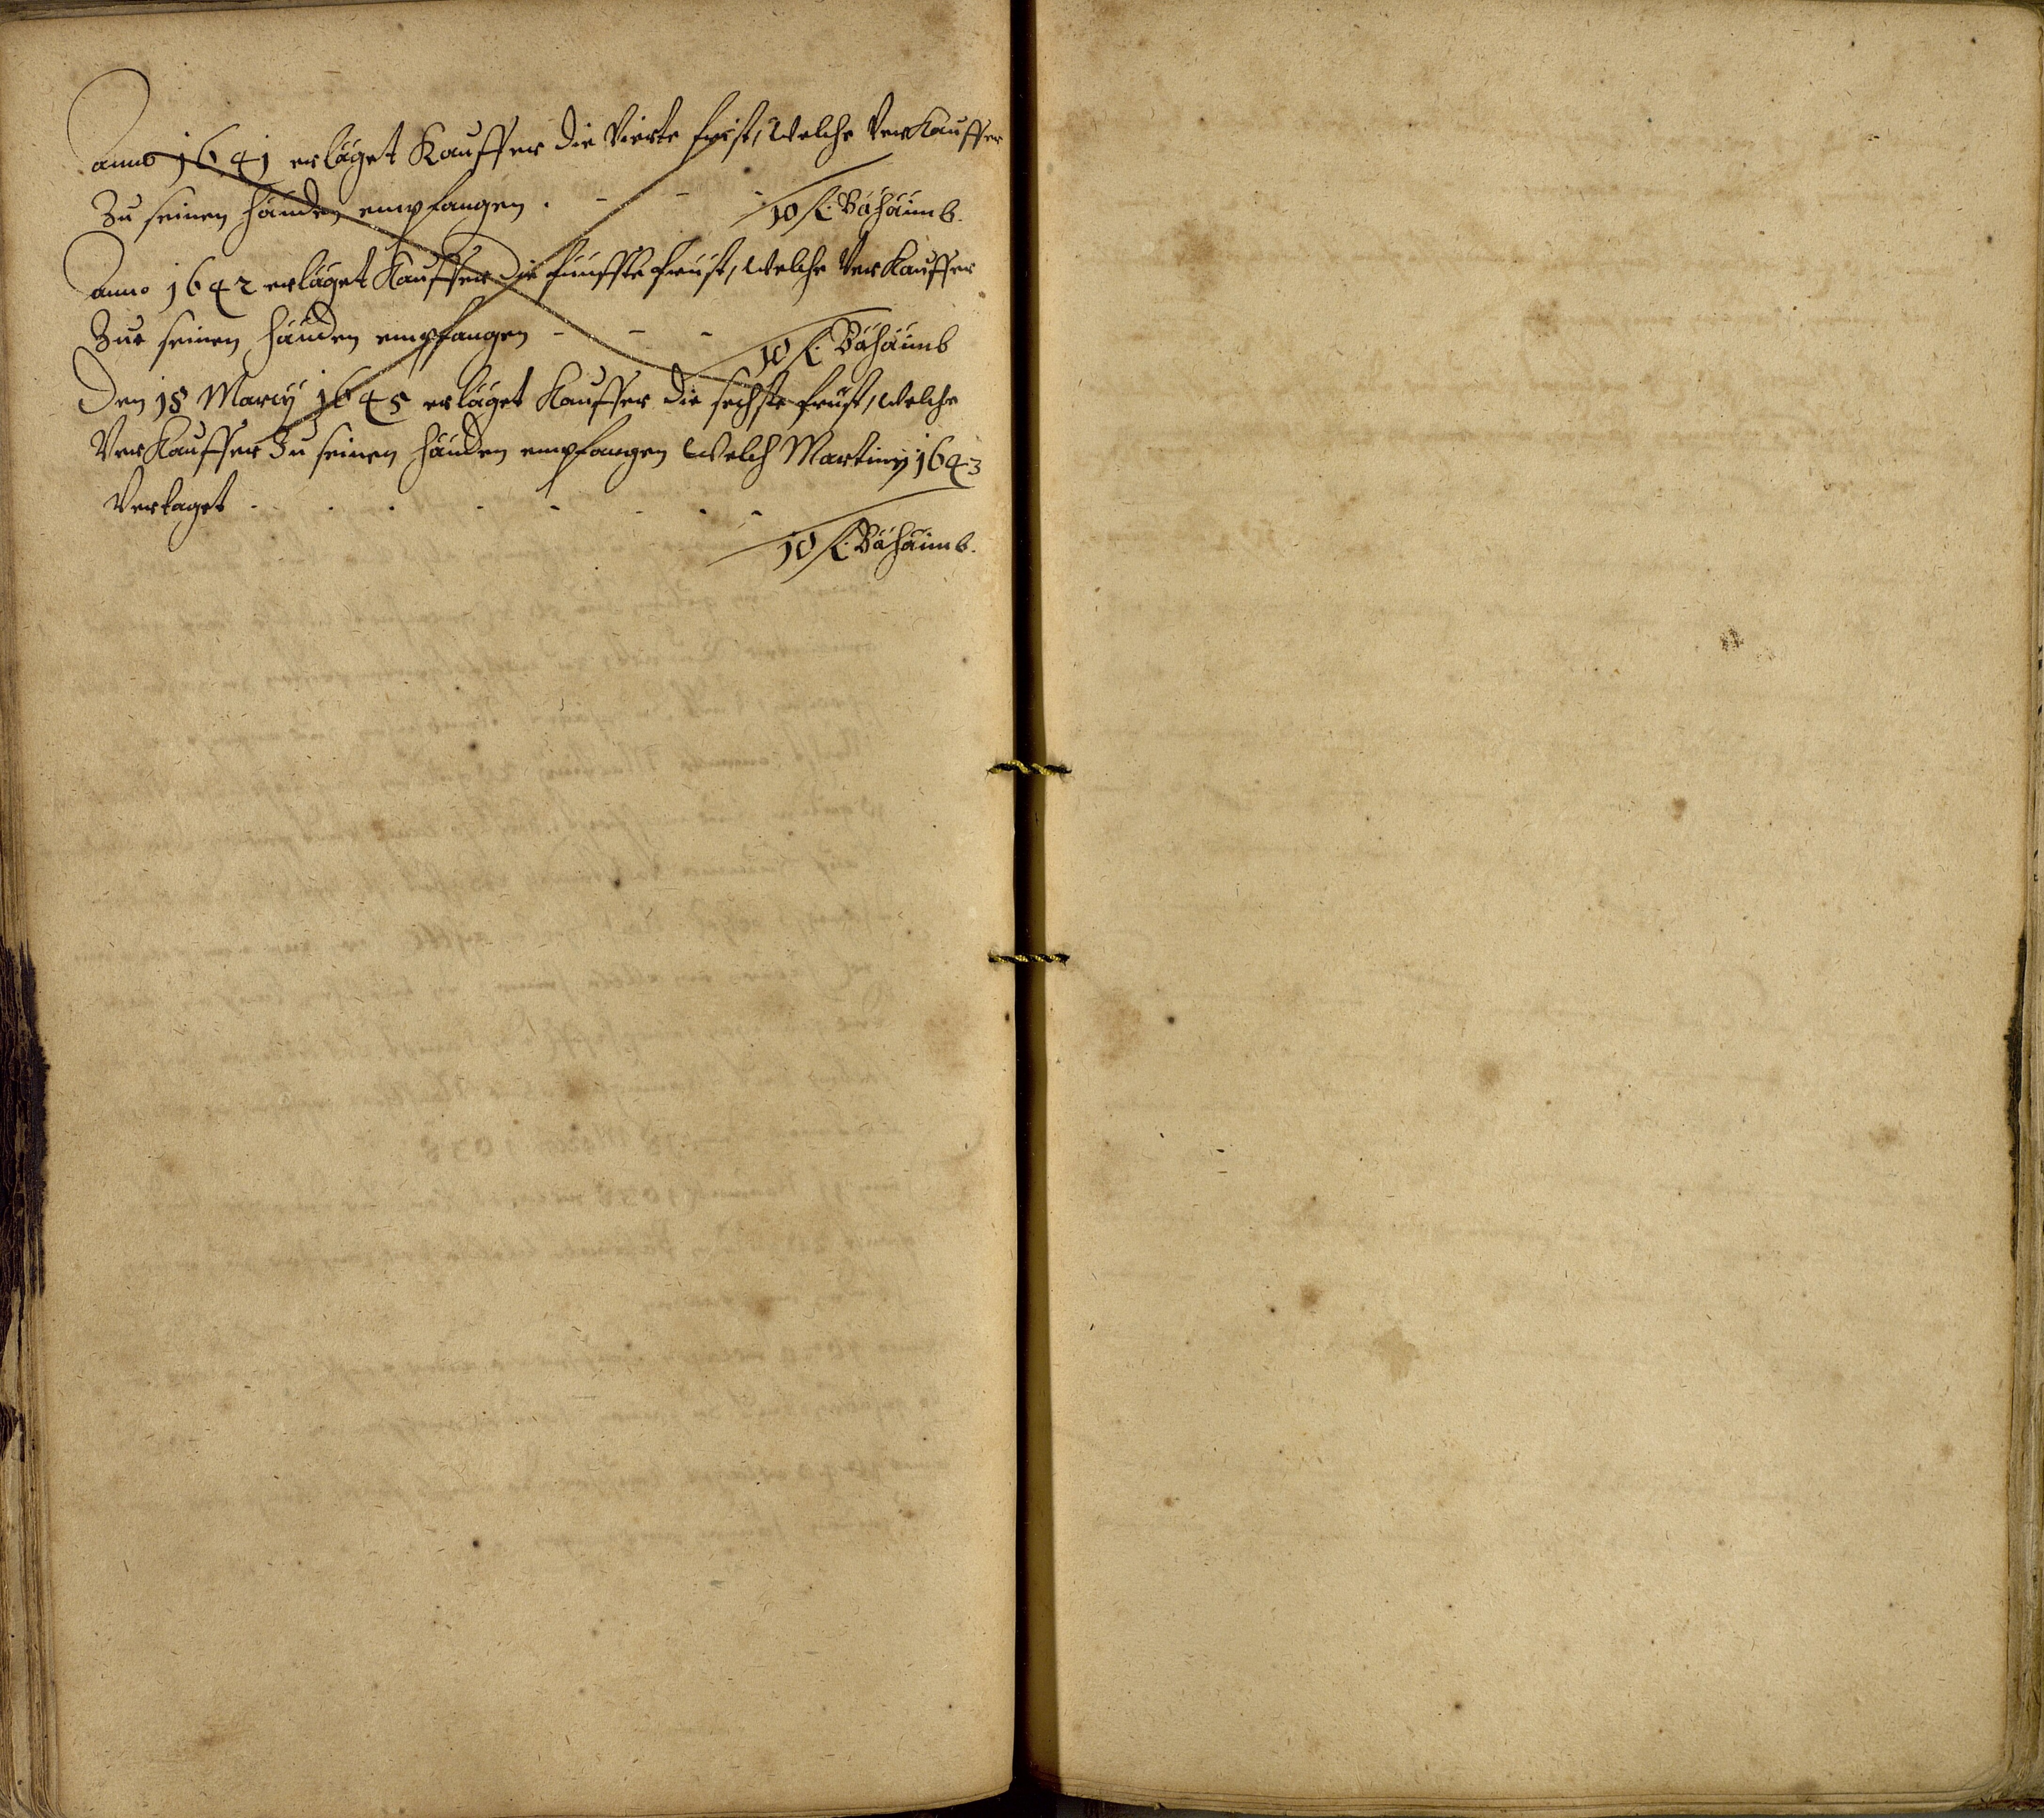 anno 1641 erläget Kauffer die Vierte frist, Welche Verkauffer
Zu seinen händen empfangen . - - - 10 fl. Bähäimb.
Anno 1642 erläget Kauffer die fünffte früst, Welche Verkauffer
Zue seinen händen empfangen - - - 10 fl. Bähäimb
Den 18 Marcÿ 1645 erläget Kauffer die sechste früst, Welche
Verkauffer Zu seinen händen empfangen Welch Martinÿ 1643
Vertaget - . . . - - . -
10 fl. Bähäimb.